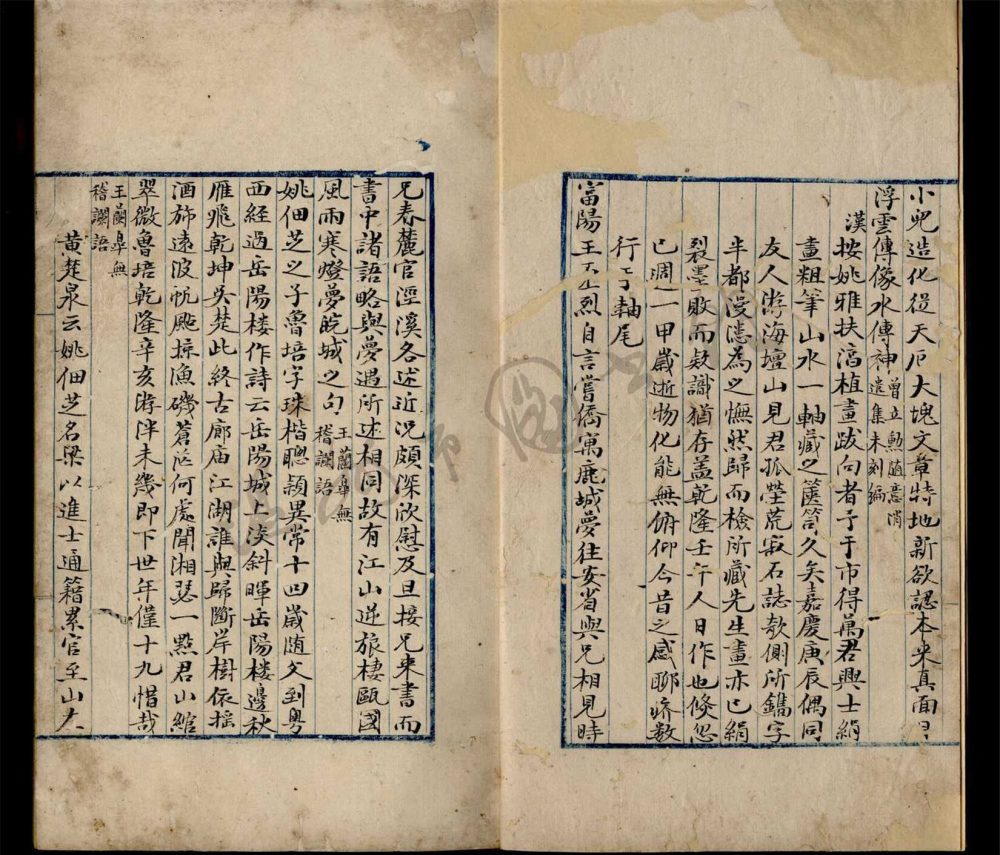 小兒造化從天尼大塊文章特地新欲認本來真面目
浮雲傳像水傳神
曾立勲隨意消
遣集未刻編
漢按姚雅扶滀植畫跋向者予于市得萬君興士絹
畫粗筆山水一軸藏之篋笥久矣嘉慶庚辰偶同
友人游海壇山見君孤塋荒寂石誌欹側所鐫字
半都漫漶為之憮然歸而檢所藏先生畫亦已絹
裂墨敗而欵識猶存蓋乾隆壬午人日作也倐忽
已週一甲歲逝物化能無俯仰今昔之感聊疥數
行于軸尾
富陽王丕烈自言嘗僑寓鹿城夢往安省與兄相見時
兄春麓官涇溪各述近况頗深欣慰及旦接兄来書而
書中諸語略與夢遇所述相同故有江山逆旅棲甌國
風雨寒燈夢皖城之句
王蘭皐無
稽讕語
姚佃芝之子魯培字珠楷聰穎異常十四歲随父到粤
西經過岳陽楼作詩云岳陽城上淡斜暉岳陽楼邊秋
雁飛乾坤吳楚此終古廊庙江湖誰與歸斷岸樹依摇
酒斾遠波帆颭掠漁磯蒼茫何處聞湘瑟一點君山綰
翠微魯培乾隆辛亥游泮未幾即下世年僅十九惜哉
王蘭皐無
稽讕語
黄楚泉云姚佃芝名梁以進士通籍累官至山大